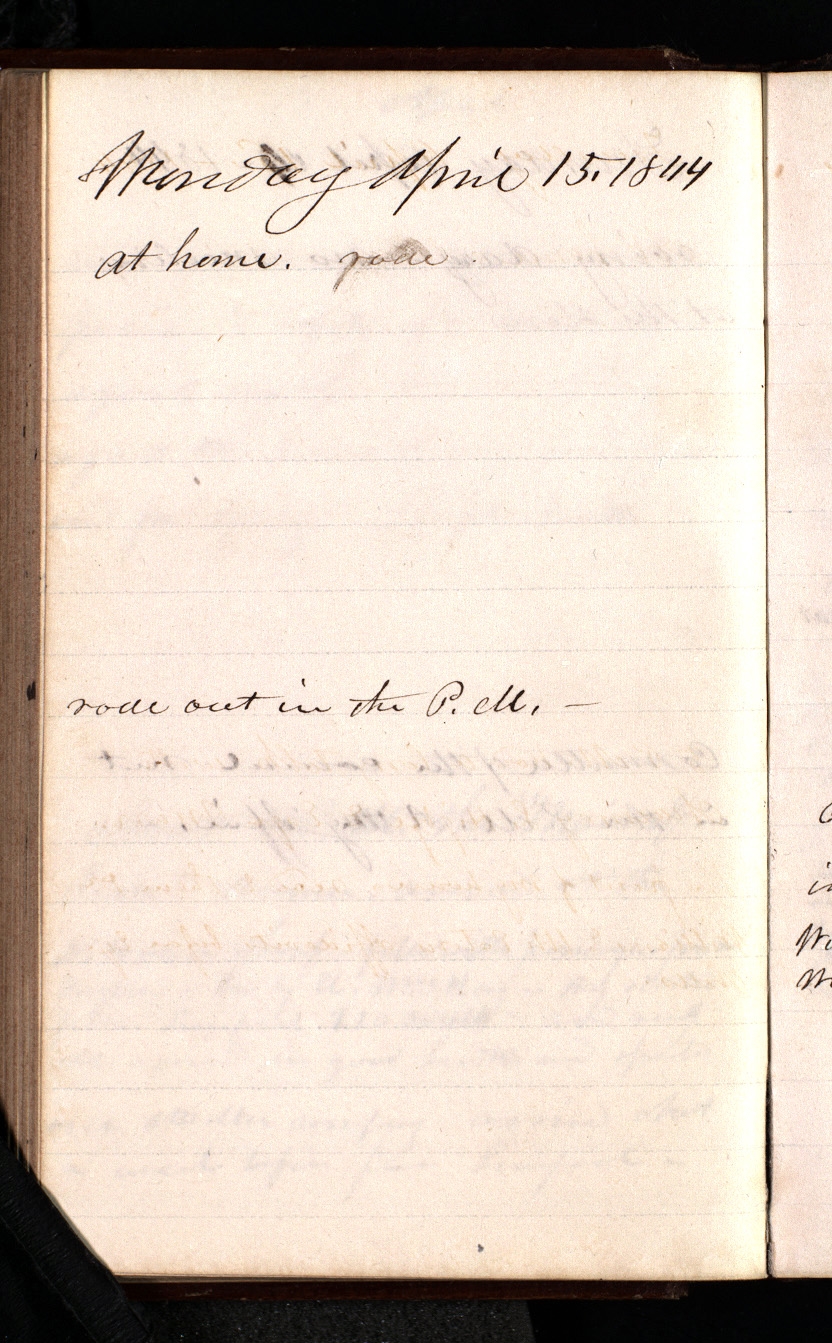 Monday April 15. 1844
at home. rode
rode out in the P. M. —